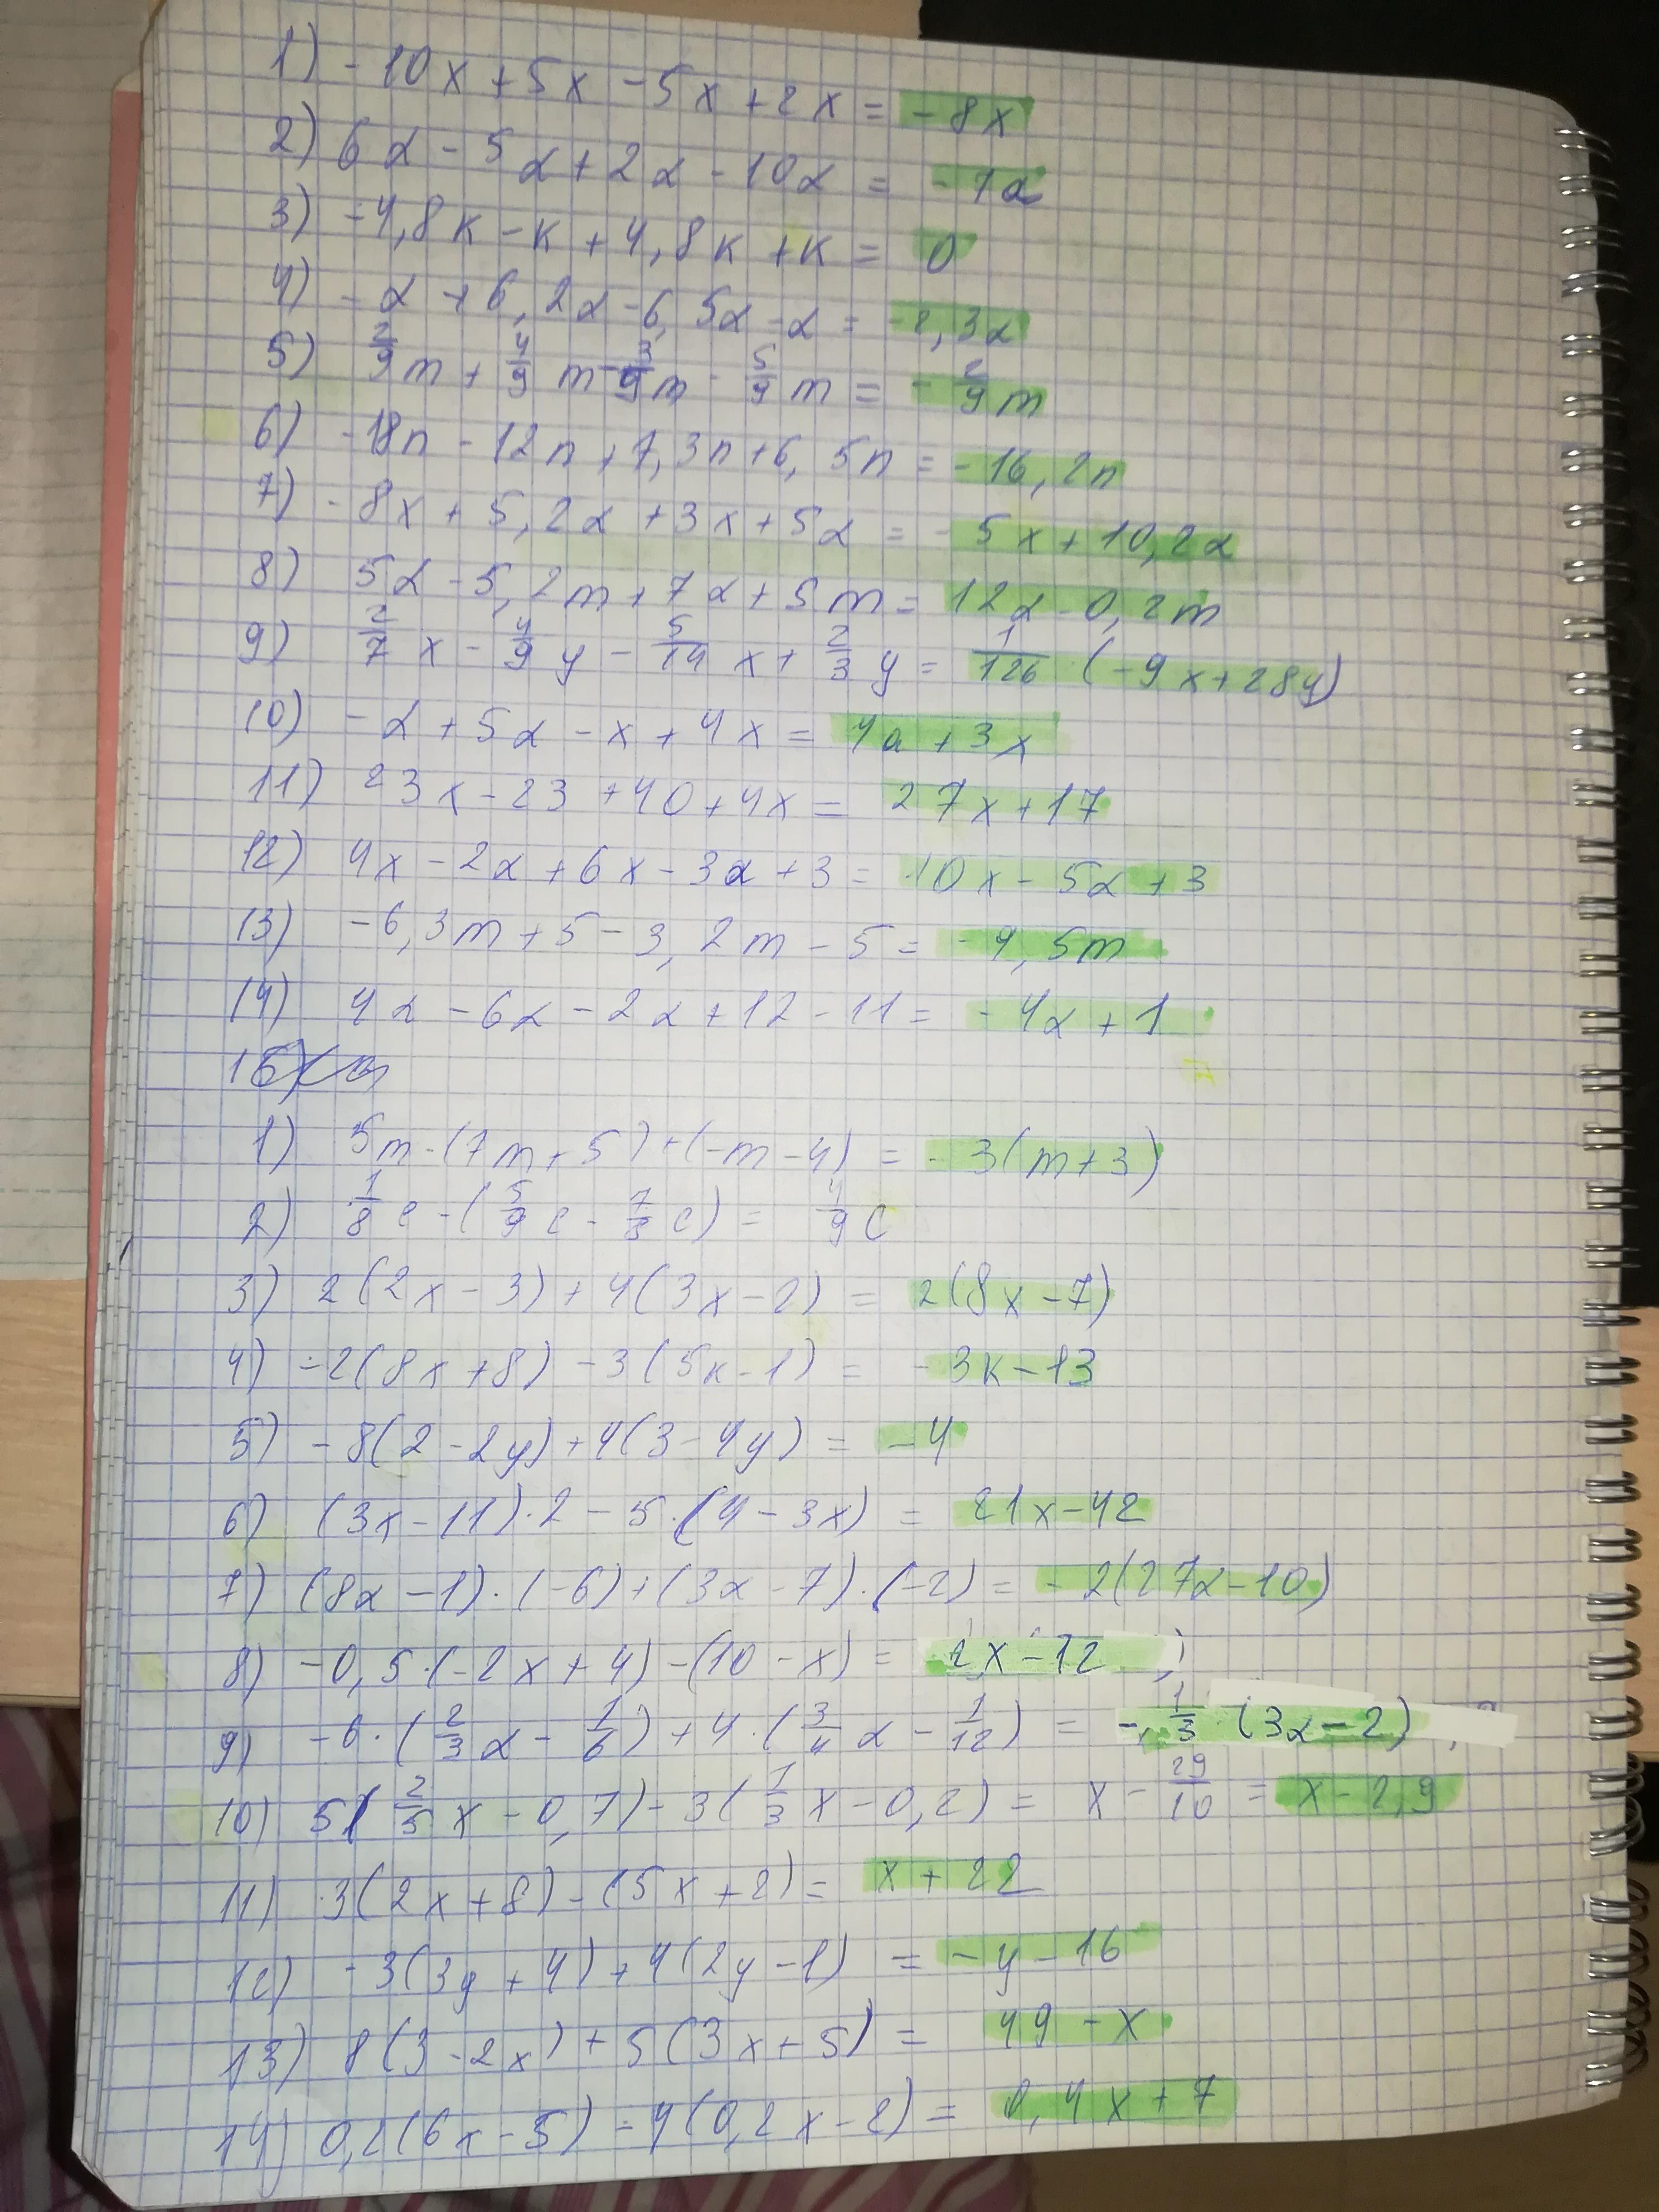 1) -10x + 5x - 5x + 2x = -8x
2) 6a - 5a + 2a - 10a = -7a
3) -4,8k - k + 4,8k + k = 0
4) -a + 6,2a - 6,5a - a = -2,3a
5) 2/9 m + 4/9 m - 3/9 m - 5/9 m = - 2/9 m
6) -18n - 12n + 7,3n + 6,5n = -16,2n
7) -8x + 5,2a + 3x + 5a = -5x + 10,2a
8) 5a - 5,2m + 7a + 5m = 12a - 0,2m
9) 2/7 x - 4/9 y - 5/14 x + 2/3 y = 1/126 · (-9x + 28y)
10) -a + 5a - x + 4x = 4a + 3x
11) 23x - 23 + 40 + 4x = 27x + 17
12) 4x - 2a + 6x - 3a + 3 = 10x - 5a + 3
13) -6,3m + 5 - 3,2m - 5 = -9,5m
14) 4a - 6a - 2a + 12 - 11 = -4a + 1
15)
1) 5m - (7m + 5) + (-m - 4) = -3(m + 3)
2) 1/8 c - (5/9 c - 7/8 c) = 4/9 c
3) 2(2x - 3) + 4(3x - 2) = 2(8x - 7)
4) -2(8x + 8) - 3(5k - 1) = -3k - 13
5) -8(2 - 2y) + 4(3 - 4y) = -4
6) (3x - 11) · 2 - 5 · (4 - 3x) = 21x - 42
7) (8a - 1) · (-6) + (3a - 7) · (-2) = -2(27a - 10)
8) -0,5 · (-2x + 4) - (10 - x) = 2x - 12
9) -6 · (2/3 a - 1/6) + 4 · (3/4 a - 1/12) = - 1/3 · (3a - 2)
10) 5(2/5 x - 0,7) - 3(1/3 x - 0,2) = x - 29/10 = x - 2,9
11) 3(2x + 8) - (5x + 2) = x + 22
12) -3(3y + 4) + 4(2y - 1) = -y - 16
13) 8(3 - 2x) + 5(3x + 5) = 49 - x
14) 0,2(6x - 5) - 4(0,2x - 2) = 0,4x + 7